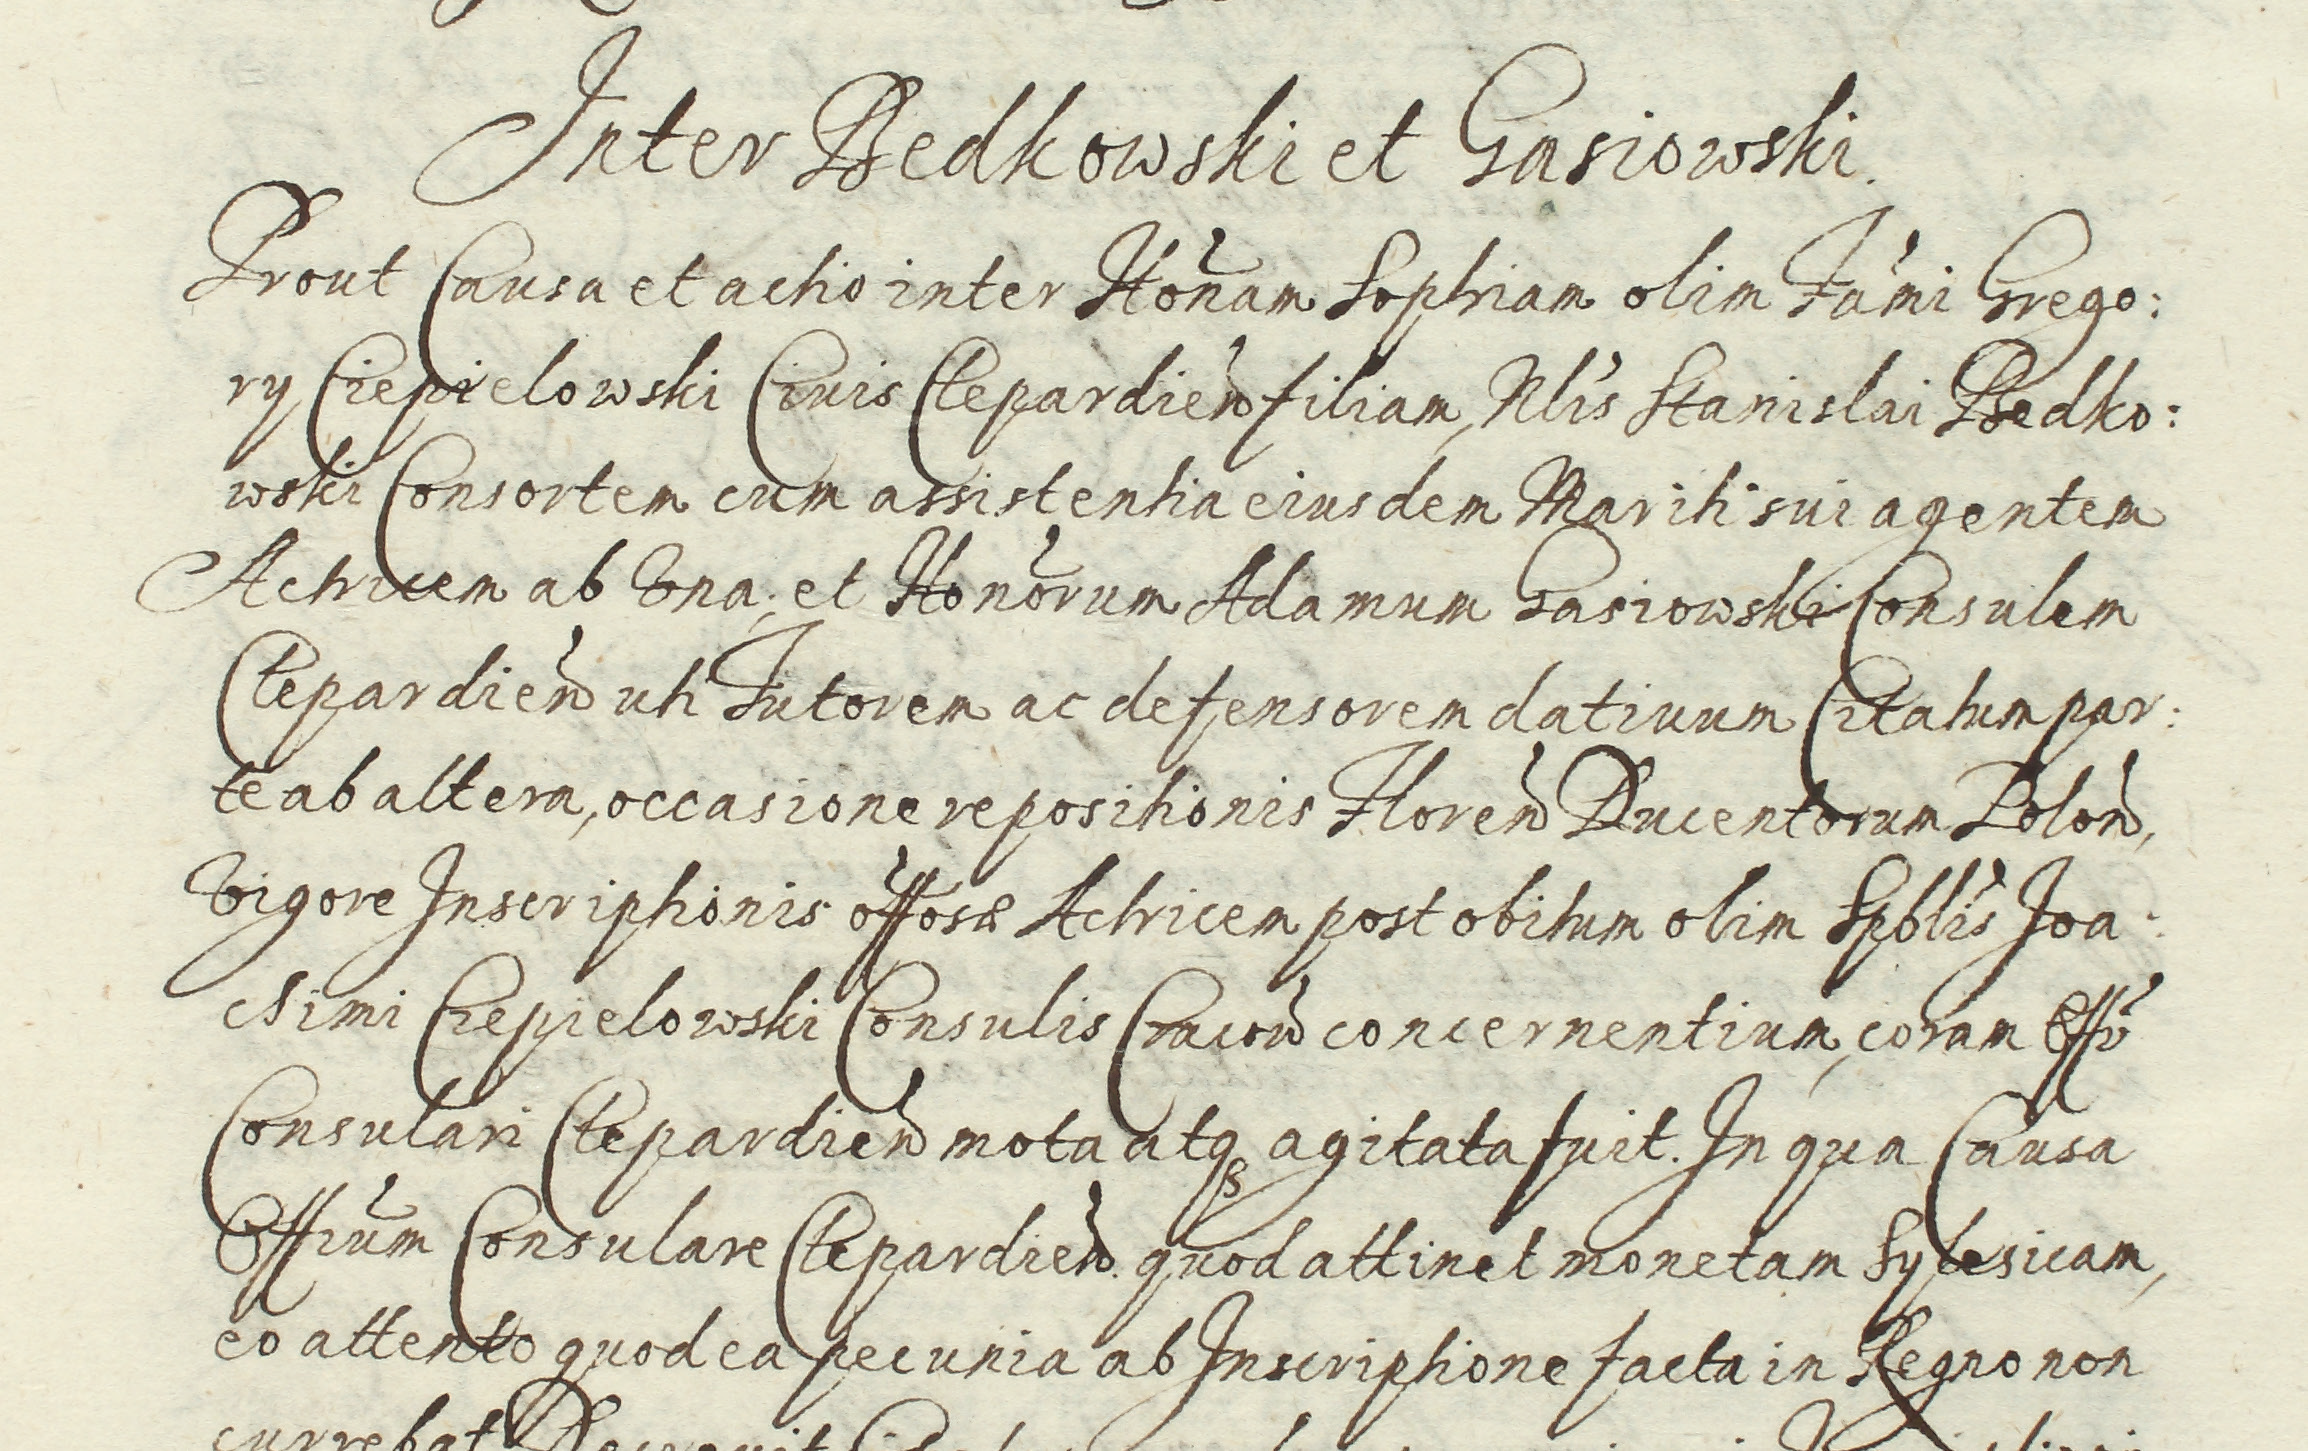 Inter Bedkowski et Gasiowski.
Prout Causa et actio inter Honam Sophiam olim Fami Grego:
ry Ciepielowski Ciuis Clepardien filiam, Nlis Stanislai Bedko:
wski Consortem cum assistentia eiusdem Mariti sui agentem
Actricem ab Vna; et Honorum Adamum Gasiowski Consulem
Clepardien uti Tutorem ac defensorem datiuum Citatum par:
te ab altera, occasione repositionis Floren Ducentorum Polon,
Vigore Inscriptionis offosae Actricem post obitum olim Spblis Joa:
chimi Ciepielowski Consulis Cracou concernentium, coram Offo
Consulari Clepardien mota atq3 agitata fuit. In qua Causa
Offium Consulare Clepardien. quod attinet monetam Sylesicam,
eo attento quod ea pecunia ab Inscriptione facta in Regno non
currebat Decreuit